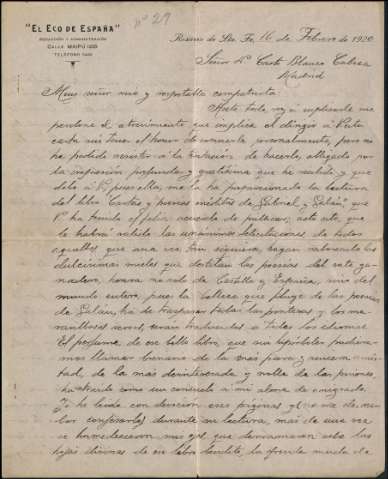 "EL ECO DE ESPAÑA"
REDACCIÓN Y ADMINISTRACIÓN
CALLE MAIPÚ
TELÉFONO
nº 29
Rosario de Sta. Fe, 16 de Febrero de 1920
Señor Dn Casto Blanco Cabeza
Madrid
Muy señor mío y respetable compatriota
Ante todo, voy a suplicarle me
perdone el atrevimiento que implica el dirigir a Vd. esta
carta sin tener el honor de conocerle personalmente, pero no
he podido resistir a la tentación de hacerlo, obligado por
la impresión profunda y gratísima que he recibido y que
debo a V. pues ella, me la ha proporcionado la lectura
del libro Cartas y poesías inéditas de Gabriel y Galán que
V. ha tenido el feliz acierto de publicar, acto este, que
le habrá valido las felicitaciones de todos
aquellos que una vez tan siquiera, hayan saboreado las
dulcísimas mieles que destilan las poesías del vate
ganadero, honra no solo de Castilla y España, sino del
mundo entero, pues la belleza que fluye de las poesías
de Galán, ha de traspasar todas las fronteras y los
versos, serán traducidos a todos los idiomas.
El perfume de ese bello libro, que sin hipérboles
llamar breviario de la más pura y sincera
de la más desinteresada y noble de las pasiones,
ha traído como un consuelo a mi alma de emigrado.
Yo he leído con devoción esas páginas y (no me
confesarlo) durante su lectura, más de una vez
se humedecieron mis ojos, que derramaron sobre las
hojas divinas de un libro bendito, la ofrenda muda de